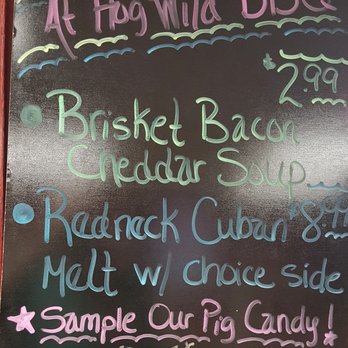 At Hog Wild BBQ
$2.99
Brisket Bacon
Cheddar Soup
Redneck Cuban $8.99
Melt w/ choice side
Sample Our Pig Candy!